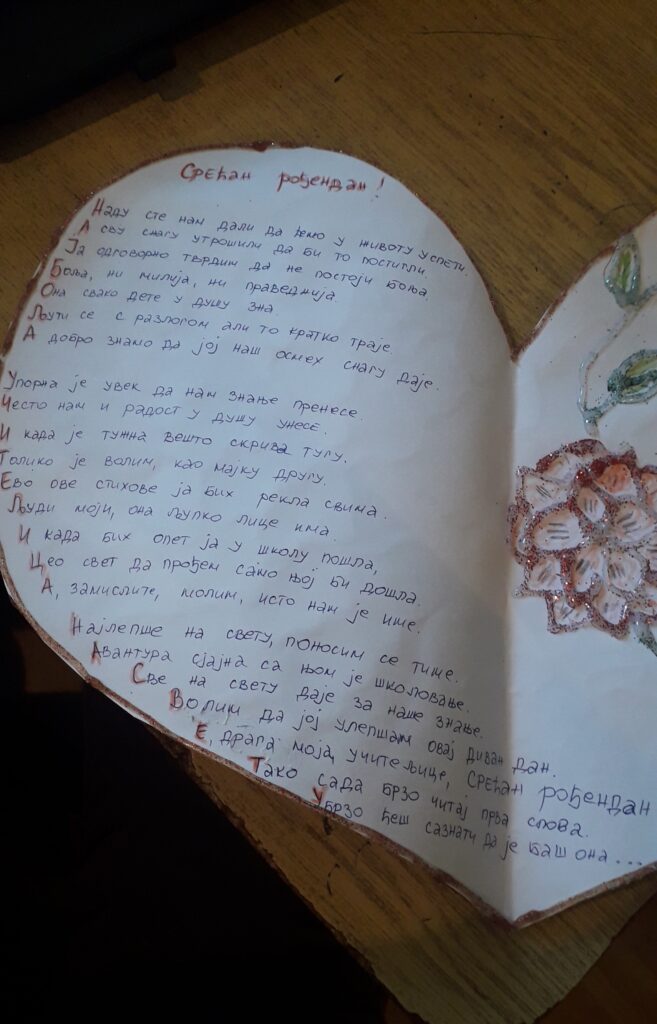 Срећан рођендан!
Наду сте нам дали да ћемо у животу успети.
А сву снагу утрошили да би то постигли.
Ја одговорно тврдим да не постоји боља.
Боља, ни милија, ни праведнија.
Она свако дете у душу зна.
Љути се с разлогом али то кратко траје.
А добро знамо да јој наш осмех снагу даје.
Упорна је увек да нам знање пренесе.
Често нам и радост у душу унесе.
И када је тужна вешто скрива тугу.
Толико је волим, као мајку другу.
Ево ове стихове ја бих рекла свима.
Људи моји, она љупко лице има.
И када бих опет ја у школу пошла,
Цео свет да прођем само њој би дошла.
А, замислите, молим, исто нам је име.
Најлепше на свету, поносим се тиме.
Авантура сјајна са њом је школовање.
Све на свету даје за наше знање.
Волим да јој улепшам овај диван дан.
Е, драга моја, учитељице, срећан рођендан
Тако сада брзо читај прва слова.
Убрзо ћеш сазнати да је баш она...